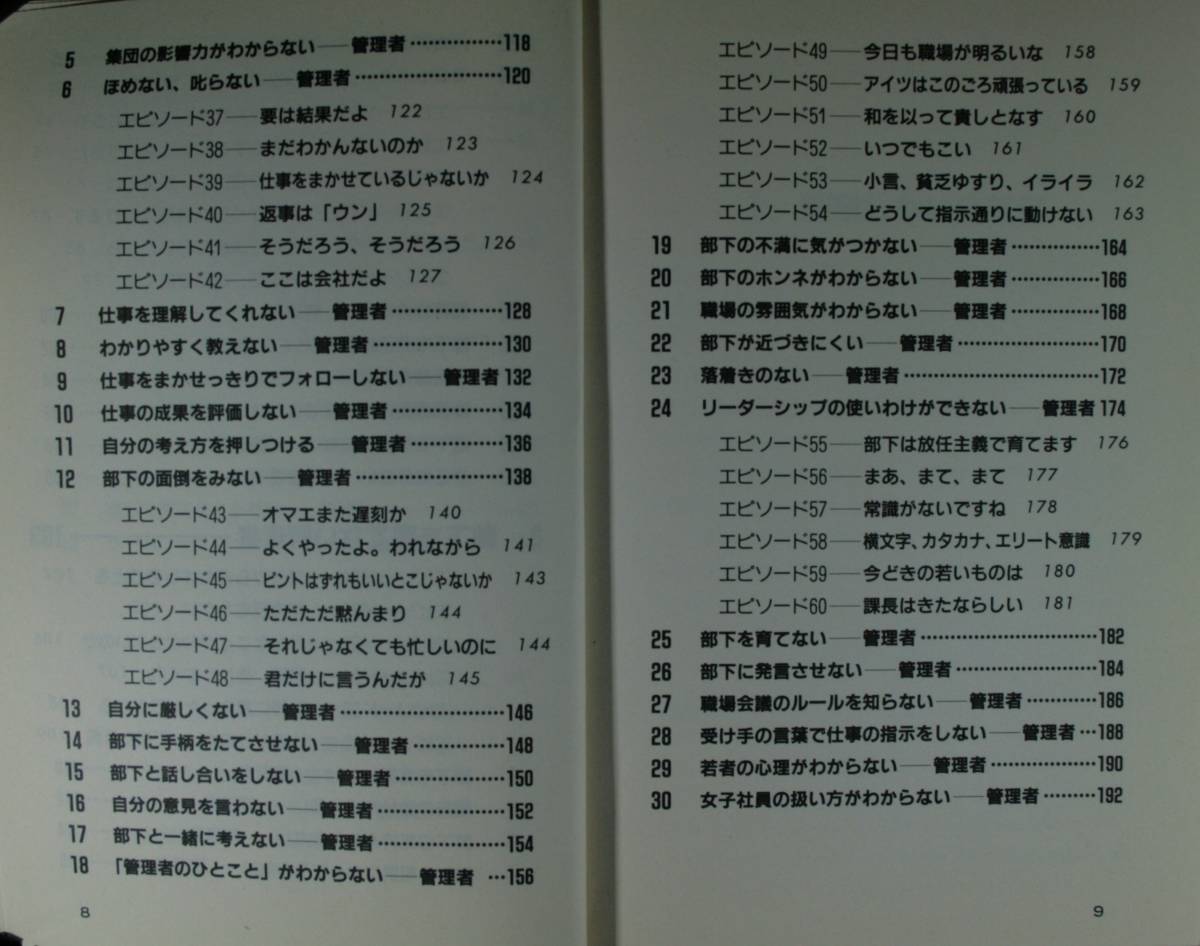 5 集団の影響力がわからない――管理者……………118
6 ほめない、叱らない――管理者……………………120
エピソード37――要は結果だよ 122
エピソード38――まだわかんないのか 123
エピソード39――仕事をまかせているじゃないか 124
エピソード40――返事は「ウン」 125
エピソード41――そうだろう、そうだろう 126
エピソード42――ここは会社だよ 127
7 仕事を理解してくれない――管理者………………128
8 わかりやすく教えない――管理者…………………130
9 仕事をまかせっきりでフォローしない――管理者 132
10 仕事の成果を評価しない――管理者………………134
11 自分の考え方を押しつける――管理者……………136
12 部下の面倒をみない――管理者……………………138
エピソード43――オマエまた遅刻か 140
エピソード44――よくやったよ。われながら 141
エピソード45――ピントはずれもいいとこじゃないか 143
エピソード46――ただただ黙んまり 144
エピソード47――それじゃなくても忙しいのに 144
エピソード48――君だけに言うんだが 145
13 自分に厳しくない――管理者………………………146
14 部下に手柄をたてさせない――管理者……………148
15 部下と話し合いをしない――管理者………………150
16 自分の意見を言わない――管理者…………………152
17 部下と一緒に考えない――管理者…………………154
18 「管理者のひとこと」がわからない――管理者…156
8
エピソード49――今日も職場が明るいな 158
エピソード50――アイツはこのごろ頑張っている 159
エピソード51――和を以って貴しとなす 160
エピソード52――いつでもこい 161
エピソード53――小言、貧乏ゆすり、イライラ 162
エピソード54――どうして指示通りに動けない 163
19 部下の不満に気がつかない――管理者……………164
20 部下のホンネがわからない――管理者……………166
21 職場の雰囲気がわからない――管理者……………168
22 部下が近づきにくい――管理者……………………170
23 落着きのない――管理者……………………………172
24 リーダーシップの使いわけができない――管理者 174
エピソード55――部下は放任主義で育てます 176
エピソード56――まあ、まて、まて 177
エピソード57――常識がないですね 178
エピソード58――横文字、カタカナ、エリート意識 179
エピソード59――今どきの若いものは 180
エピソード60――課長はきたならしい 181
25 部下を育てない――管理者…………………………182
26 部下に発言させない――管理者……………………184
27 職場会議のルールを知らない――管理者…………186
28 受け手の言葉で仕事の指示をしない――管理者…188
29 若者の心理がわからない――管理者………………190
30 女子社員の扱い方がわからない――管理者………192
9